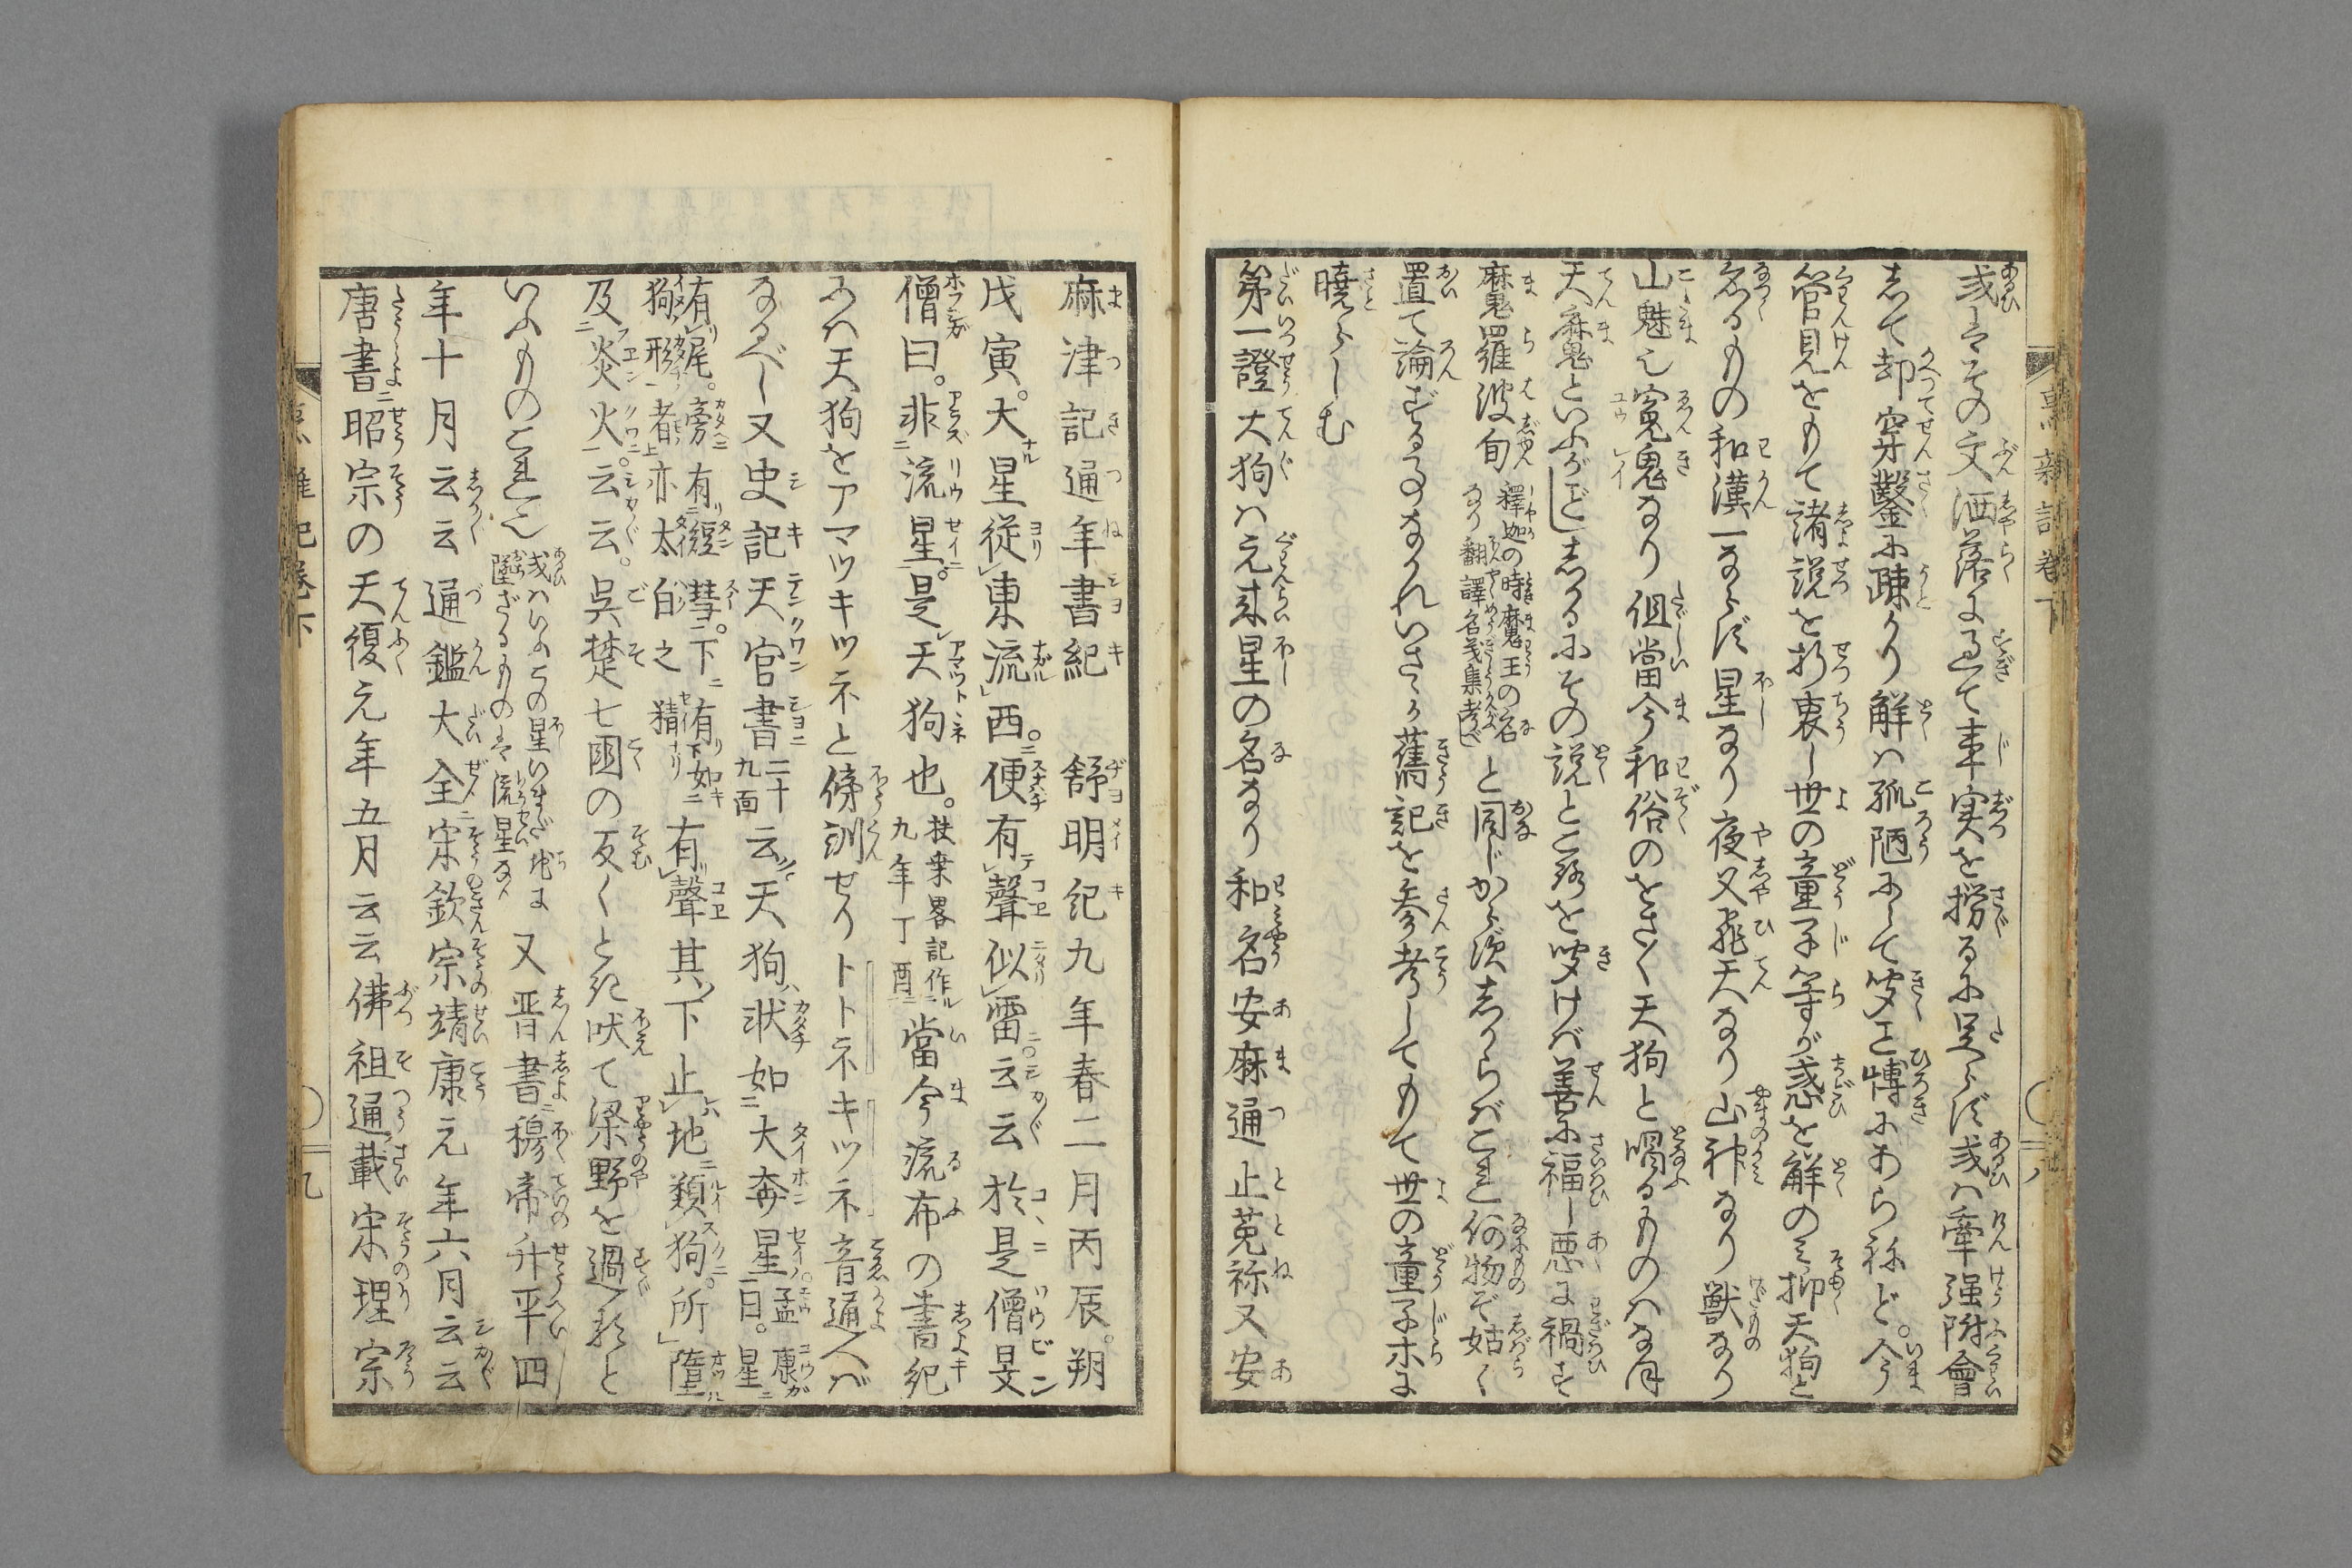 或はその文洒落に過て事実を撈るに足らず或は牽強附會
して却穿鑿に疎かり解は孤陋にして聞こと博にあらねど。今
管見をもて諸説を折衷し世の童子等が惑を解のみ抑天狗と
名るもの和漢一ならず星なり夜叉飛天なり山神なり獣なり
山魅也冤鬼なり但當今和俗のをさ〳〵天狗と唱るものはなほ
天魔といふがごとし」しかるにその説ところを聞けば善に福し悪に禍す
魔羅波旬
釋迦の時魔王の名
なり翻譯名義集考べし
と同じからずしからばこは何物ぞ姑く
置て論ずることなかれいさゝか舊記を参考してもて世の童子ホに
暁らしむ
第一證天狗ハ元来星の名なり和名安麻通止菟祢又安
麻津記通年書紀 舒明紀九年春二月丙辰。朔
戊寅。大星従東流西。便有聲似雷云云於是僧旻
僧曰。非流星。是天狗也。
扶桒畧記作
九年丁酉
當今流布の書紀
には天狗をアマツキツネと傍訓せりトトネキツネ音通へば
なるべし又史記天官書
二十
九面
云天狗状如大奔星
孟康
曰。星
有尾。旁有短彗。下有如
狗形者亦太白之精
有聲其下止地類狗。所墮
及炎火。云云。呉楚七國の反くとき吠て梁野を過ると
いふものこれ也
或はいふこの星いまだ地に
墮ざるものは流星なり
又晋書穆帝升平四
年十月云云通鑑大全宋欽宗靖康元年六月云云
唐書昭宗の天復元年五月云云佛祖通載宋理宗